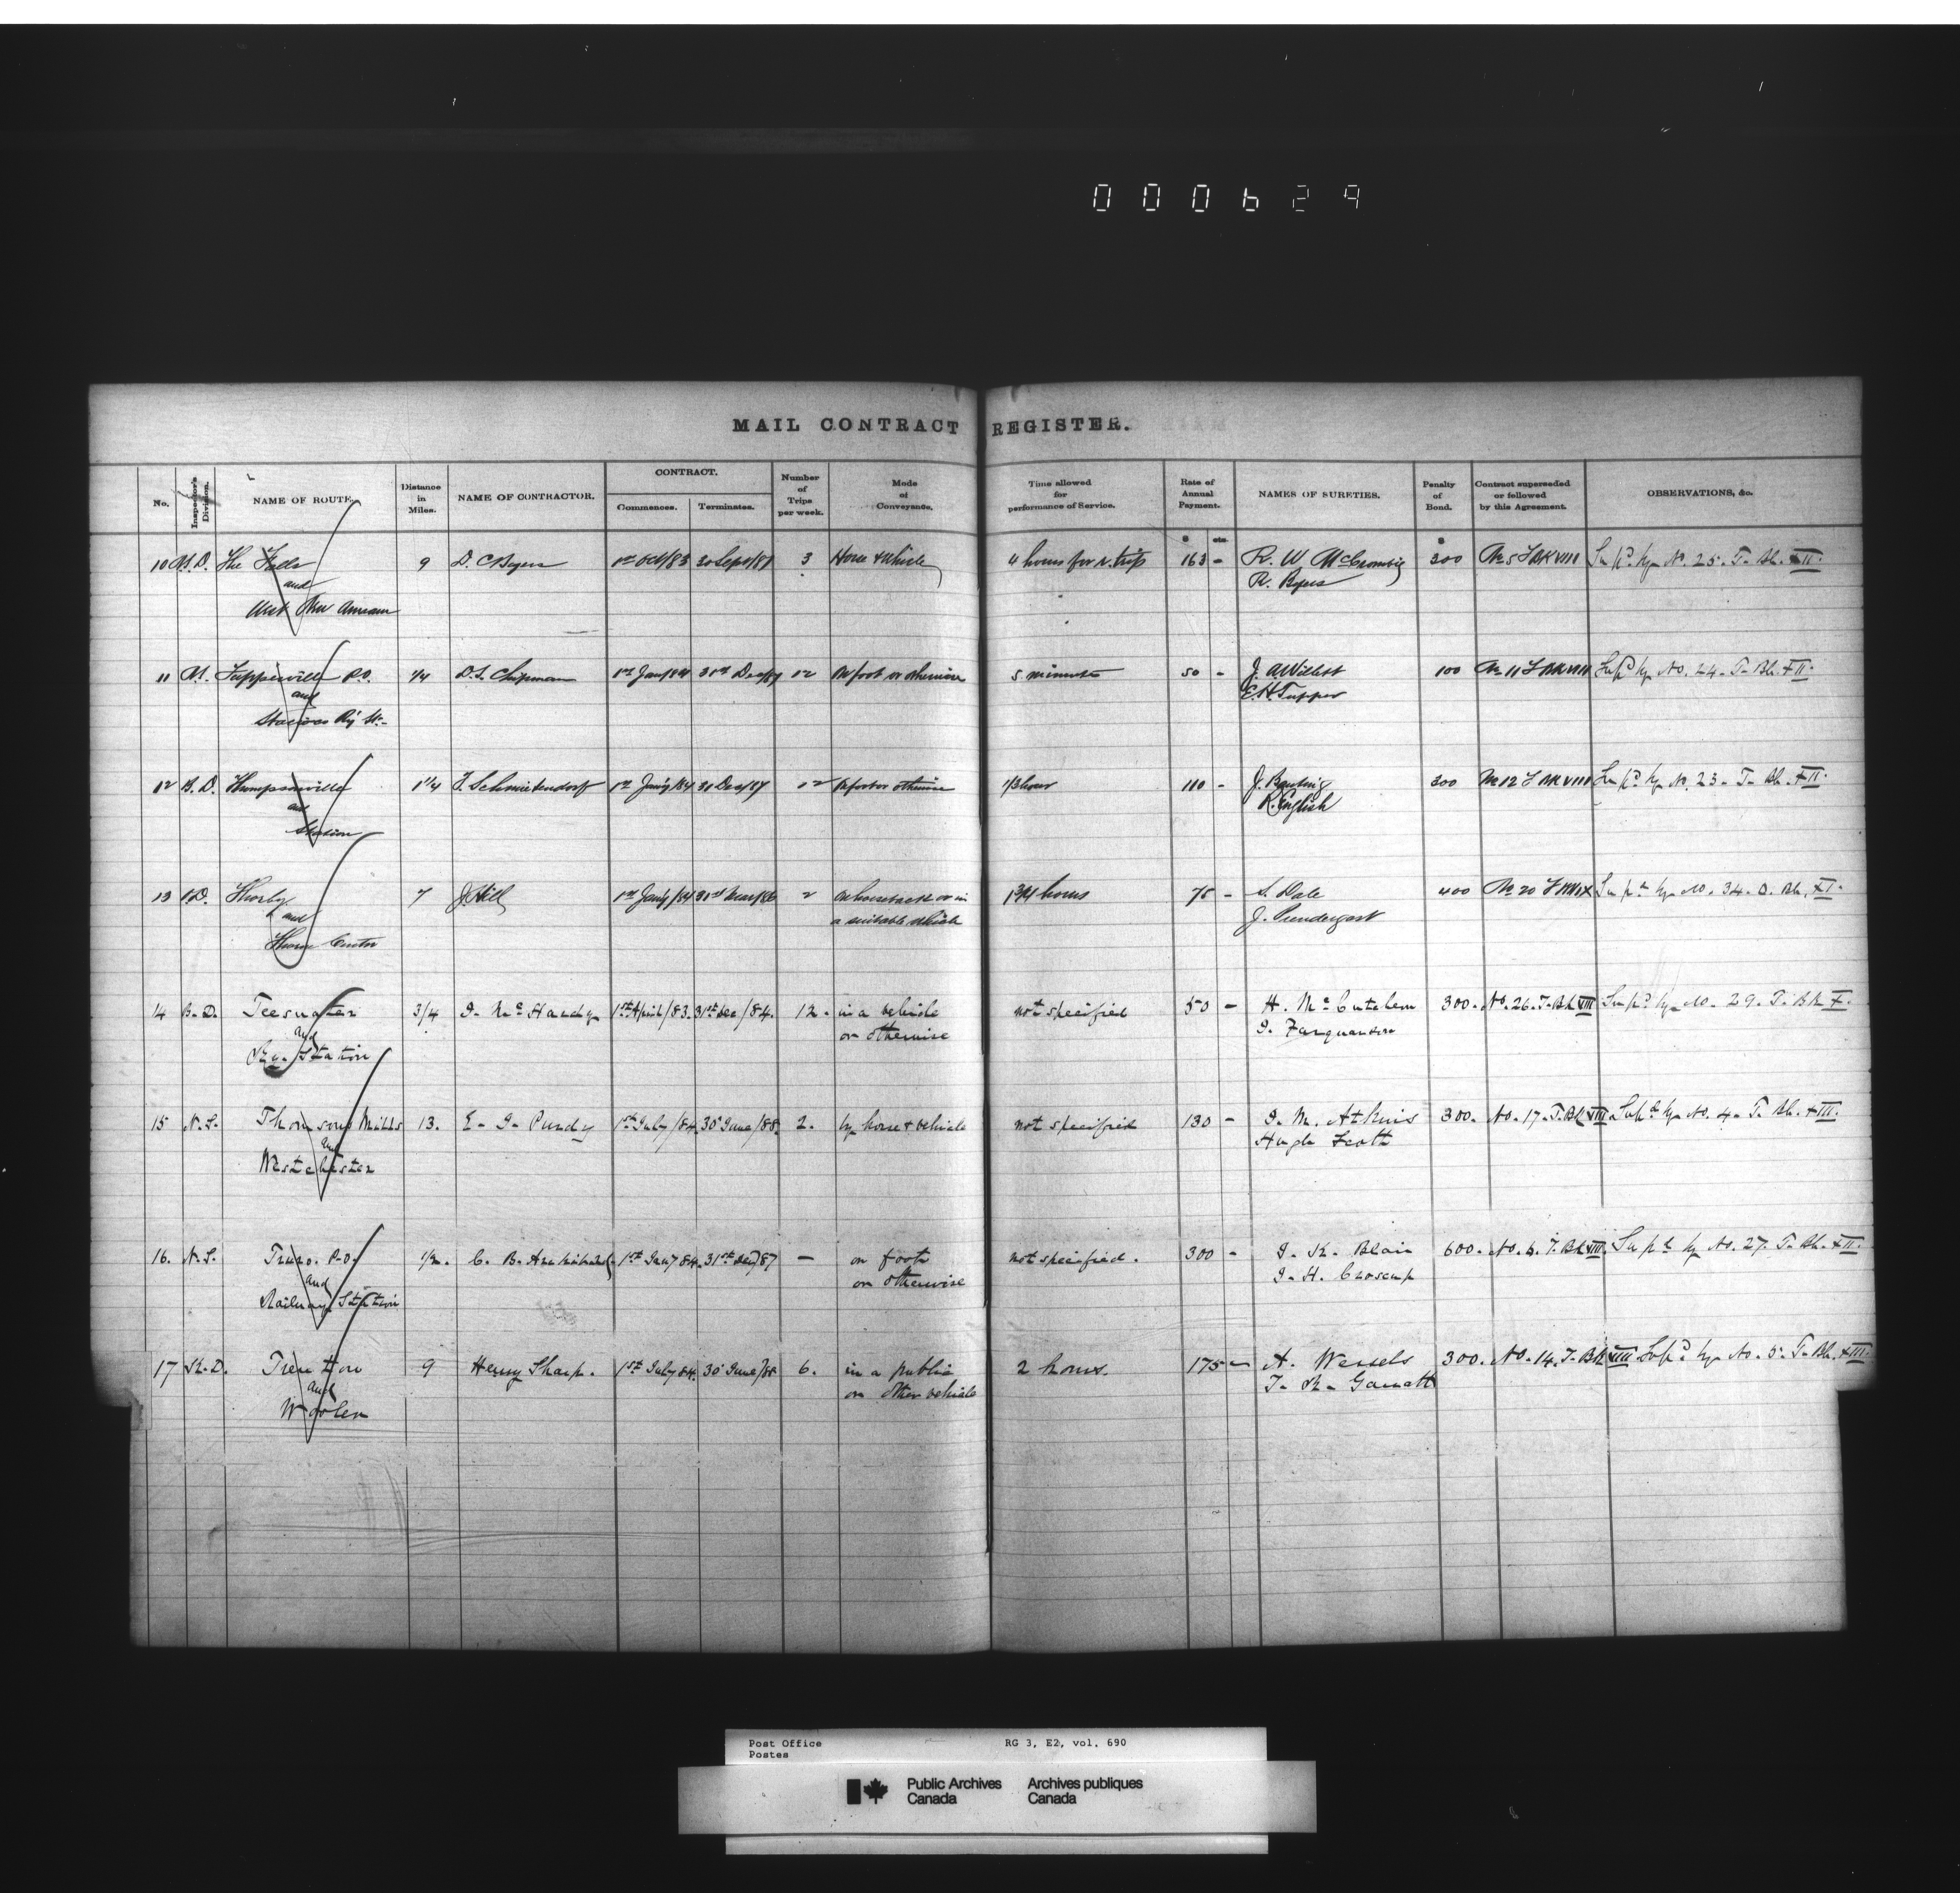 000629
MAIL CONTRACT REGISTER.
No. Inspector's Division. NAME OF ROUTE. Distance in Miles. NAME OF CONTRACTOR. CONTRACT. Commences. Terminates. Number of Trips per week. Mode of Conveyance. Time allowed for performance of Service. Rate of Annual Payment. NAMES OF SURETIES. Penalty of Bond. Contract superseded or followed by this Agreement. OBSERVATIONS, &c.
$ cts. $
10 The Falls 9 D. C Byers 1st Oct/83 30 Sept/87 3 Horse & Vehicle 4 hours for r. trip 163 - R. W McCrombie 300 No 5 T BK VIII Supd by No. 25. T. Bk. XII.
and R. Byers
West New Annan
11 Tupperville P.O. 1/4 D. L. Chipman 1st Jany/84 31st Dec/87 12 On foot or otherwise 5 minutes 50 - J. A Willett 100 No 11 T BK VIII Supd by No. 24. T. Bk. XII.
and E. H. Tupper
Station Ry St.
12 Thompsonville 1 1/4 1st Jany/84 31 Dec/87 12 On foot or otherwise 1/3 hour 110 - J. Banting 300 No 12 T BK VIII Supd by No. 23. T. Bk. XII.
and R. English
Station
13 Thorley 7 J. Hill 1st Jany/84 31st Mar/86 2 On horseback or in 1 3/4 hours 75 - S. Dale 400 No 20 Supd by No. 34. O. Bk. XI.
and a suitable vehicle J. Prendergast
Thorne Centre
14 B. D. Teeswater 3/4 J. Mc Hardy 1st April/83. 31st Dec/84. 12. in a vehicle not specified 50 - H. Mc Cutcheon 300. No. 26. T. Bk VIII Supd by No. 29. T. Bk X.
and or otherwise J. Farquharson
Ry. Station
15 N. S. Thomsons Mills 13. E. J. Purdy 1st July/84. 30 June/88. 2. by horse & vehicle not specified 130 - J. M. Atkins 300. No. 17. T. Bk VIII Supd by No. 4. T. Bk. XIII.
and Hugh Scott
Westchester
16. N. S. Truro. P.O. 1/2. C. B. Archibald 1st Jany 84. 31st Dec/87 — on foot not specified. 300 - J. K. Blair 600. No. 6. T. Bk VIII. Supd by No. 27. T. Bk. XII.
and or otherwise J. H. Croscup
Railway Station
17 K. D. Trenton 9 Henry Sharp. 1st July 84. 30 June/88 6. in a public 2 hours. 175 — A. Wessels 300. No. 14. T. Bk VIII Supd by No. 5. T. Bk. XIII.
and or other vehicle T. K. Garratt
Wooler
Post Office RG 3, E2, vol. 690
Postes
Public Archives Archives publiques
Canada Canada